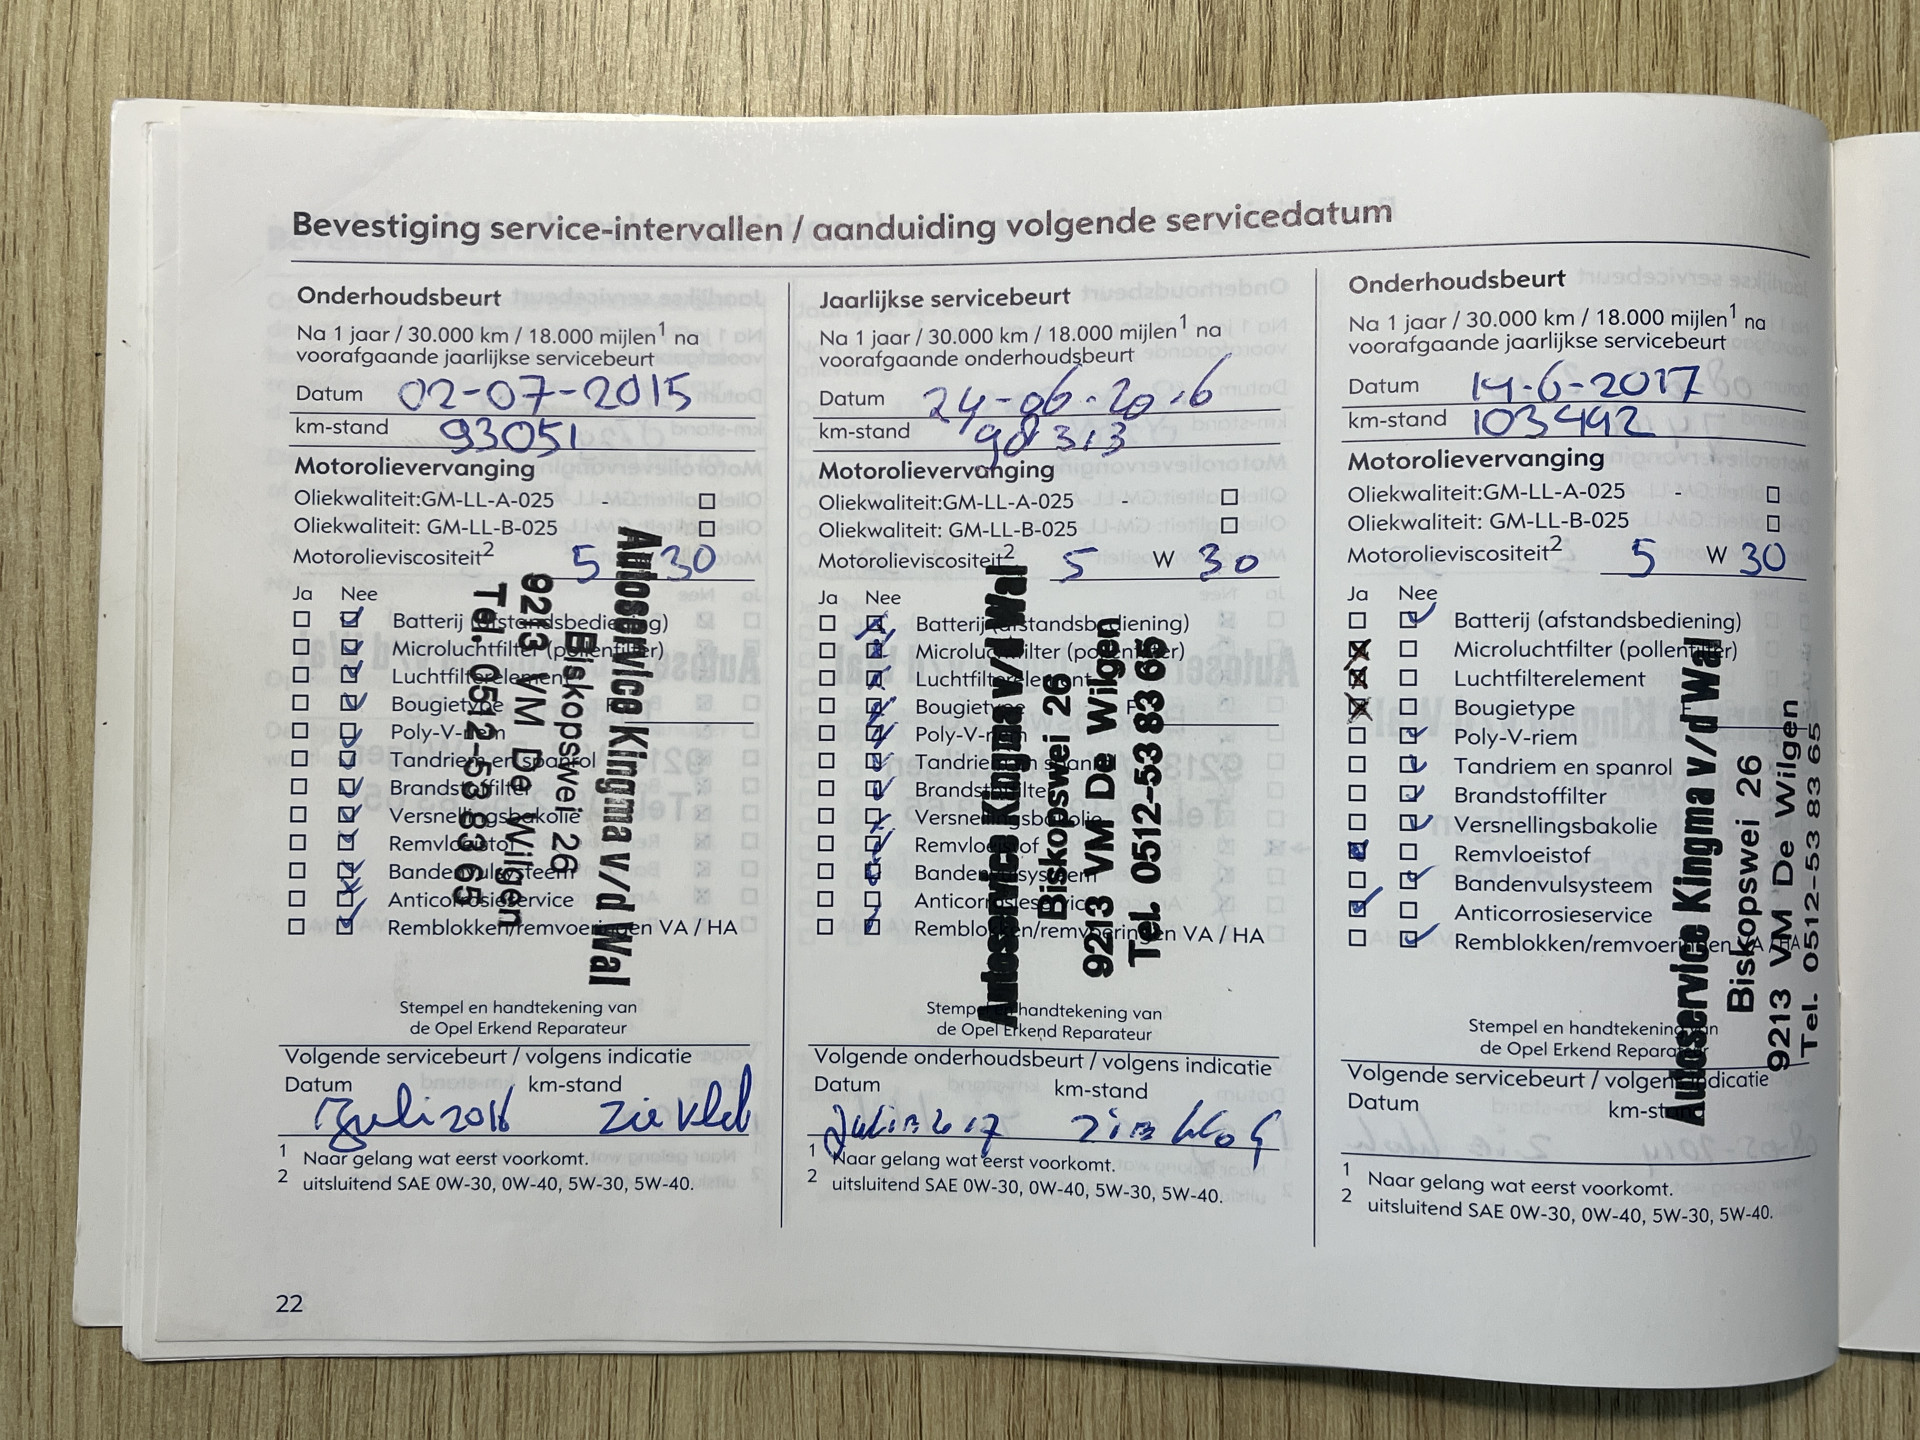 Bevestiging service-intervallen / aanduiding volgende servicedatum
Onderhoudsbeurt
Na 1 jaar / 30.000 km / 18.000 mijlen¹ na
voorafgaande jaarlijkse servicebeurt
Datum 02-07-2015
km-stand 93051
Motorolievervanging
Oliekwaliteit:GM-LL-A-025 -
Oliekwaliteit: GM-LL-B-025
Motorolieviscositeit² 5 30
Ja Nee
Batterij (afstandsbediening)
Microluchtfilter (pollenfilter)
Luchtfilterelement
Bougietype
Poly-V-riem
Tandriem en spanrol
Brandstoffilter
Versnellingsbakolie
Remvloeistof
Bandenvulsysteem
Anticorrosieservice
Remblokken/remvoeringen VA / HA
Autoservice Kingma v/d Wal
Biskopswei 26
9213 VM De Wilgen
Tel. 0512-53 83 65
Stempel en handtekening van
de Opel Erkend Reparateur
Volgende servicebeurt / volgens indicatie
Datum km-stand
Juli 2016 zie
¹ Naar gelang wat eerst voorkomt.
² uitsluitend SAE 0W-30, 0W-40, 5W-30, 5W-40.
Jaarlijkse servicebeurt
Na 1 jaar / 30.000 km / 18.000 mijlen¹ na
voorafgaande onderhoudsbeurt
Datum 24-06-2016
km-stand 98313
Motorolievervanging
Oliekwaliteit:GM-LL-A-025 -
Oliekwaliteit: GM-LL-B-025
Motorolieviscositeit² 5 W 30
Ja Nee
Batterij (afstandsbediening)
Microluchtfilter (pollenfilter)
Luchtfilterelement
Bougietype F
Poly-V-riem
Tandriem en spanrol
Brandstoffilter
Versnellingsbakolie
Remvloeistof
Bandenvulsysteem
Anticorrosieservice
Remblokken/remvoeringen VA / HA
Autoservice Kingma v/d Wal
Biskopswei 26
9213 VM De Wilgen
Tel. 0512-53 83 65
Stempel en handtekening van
de Opel Erkend Reparateur
Volgende onderhoudsbeurt / volgens indicatie
Datum km-stand
¹ Naar gelang wat eerst voorkomt.
² uitsluitend SAE 0W-30, 0W-40, 5W-30, 5W-40.
Onderhoudsbeurt
Na 1 jaar / 30.000 km / 18.000 mijlen¹ na
voorafgaande jaarlijkse servicebeurt
Datum 14-6-2017
km-stand 103492
Motorolievervanging
Oliekwaliteit:GM-LL-A-025 -
Oliekwaliteit: GM-LL-B-025
Motorolieviscositeit² 5 W 30
Ja Nee
Batterij (afstandsbediening)
Microluchtfilter (pollenfilter)
Luchtfilterelement
Bougietype
Poly-V-riem
Tandriem en spanrol
Brandstoffilter
Versnellingsbakolie
Remvloeistof
Bandenvulsysteem
Anticorrosieservice
Remblokken/remvoeringen VA / HA
Autoservice Kingma v/d Wal
Biskopswei 26
9213 VM De Wilgen
Tel. 0512-53 83 65
Stempel en handtekening van
de Opel Erkend Reparateur
Volgende servicebeurt / volgens indicatie
Datum km-stand
¹ Naar gelang wat eerst voorkomt.
² uitsluitend SAE 0W-30, 0W-40, 5W-30, 5W-40.
22